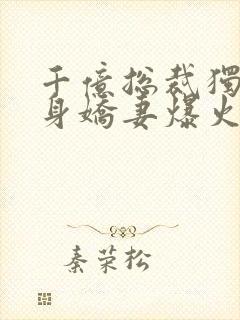 千億总裁獨
身嬌妻爆火
秦荣松